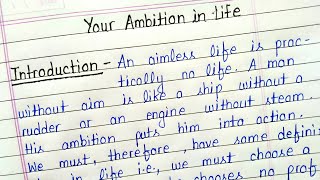 Your Ambition in Life
Introduction - An aimless life is prac-
tically no life. A man
without aim is like a ship without a
rudder or an engine without steam.
His ambition puts him into action.
We must, therefore, have some defini
in life i.e., we must choose a
chooses no prof